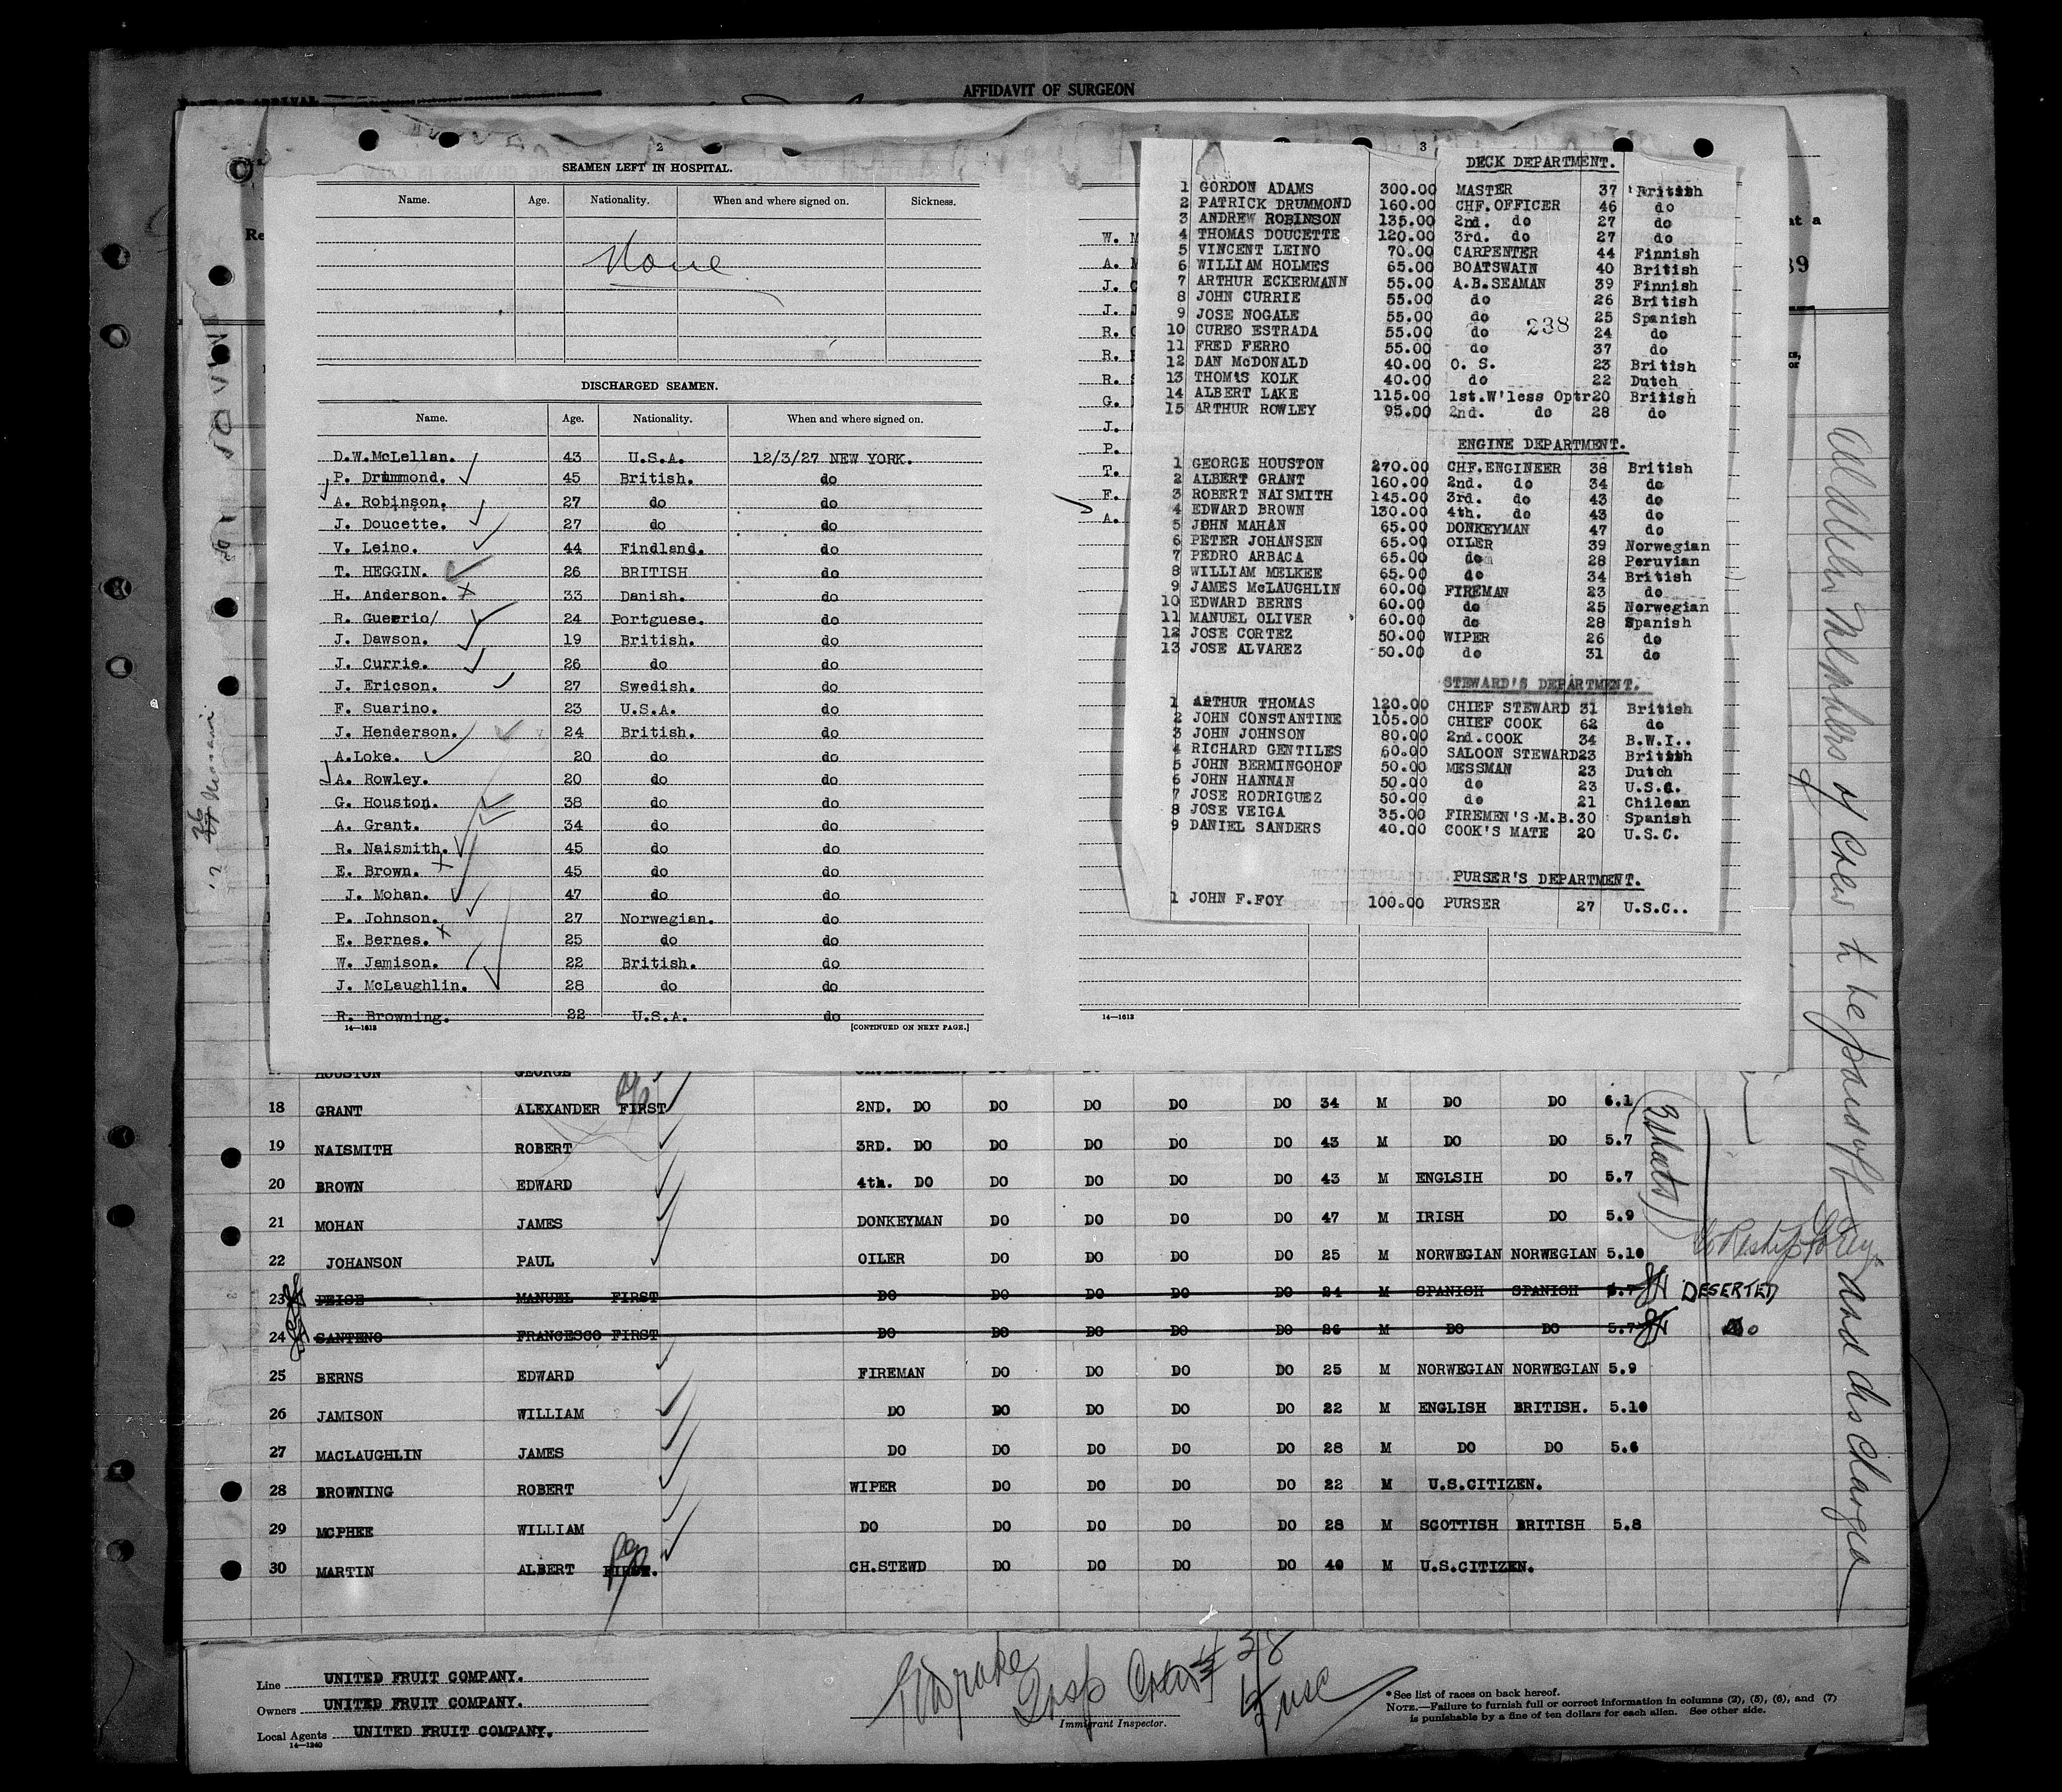 AFFIDAVIT OF SURGEON
2
SEAMEN LEFT IN HOSPITAL.
Name. Age. Nationality. When and where signed on. Sickness.
None
DISCHARGED SEAMEN.
Name. Age. Nationality. When and where signed on.
D.W.McLellan. 43 U.S.A. 12/3/27 NEW YORK.
P. Drummond. 45 British. do
A. Robinson. 27 do do
J. Doucette. 27 do do
V. Leino. 44 Findland. do
T. HEGGIN. 26 BRITISH do
H. Anderson. 33 Danish. do
R. Guerrio/ 24 Portguese. do
J. Dawson. 19 British. do
J. Currie. 26 do do
J. Ericson. 27 Swedish. do
F. Suarino. 23 U.S.A. do
J. Henderson. 24 British. do
A.Loke. 20 do do
A. Rowley. 20 do do
G. Houston. 38 do do
A. Grant. 34 do do
R. Naismith. 45 do do
E. Brown. 45 do do
J. Mohan. 47 do do
P. Johnson. 27 Norwegian. do
E. Bernes. 25 do do
W. Jamison. 22 British. do
J. McLaughlin. 28 do do
R. Browning. 22 U.S.A. do
14—1613 [CONTINUED ON NEXT PAGE.]
3
W. M
A. M
J.
J.
R.
R.
R.
G.
J.
P.
T.
F.
A.
DECK DEPARTMENT.
1 GORDON ADAMS 300.00 MASTER 37 British
2 PATRICK DRUMMOND 160.00 CHF.OFFICER 46 do
3 ANDREW ROBINSON 135.00 2nd. do 27 do
4 THOMAS DOUCETTE 120.00 3rd. do 27 do
5 VINCENT LEINO 70.00 CARPENTER 44 Finnish
6 WILLIAM HOLMES 65.00 BOATSWAIN 40 British
7 ARTHUR ECKERMANN 55.00 A.B.SEAMAN 39 Finnish
8 JOHN CURRIE 55.00 do 26 British
9 JOSE NOGALE 55.00 do 25 Spanish
238
10 CUREO ESTRADA 55.00 do 24 do
11 FRED FERRO 55.00 do 37 do
12 DAN McDONALD 40.00 O. S. 23 British
13 THOMAS KOLK 40.00 do 22 Dutch
14 ALBERT LAKE 115.00 1st.W'less Optr20 British
15 ARTHUR ROWLEY 95.00 2nd. do 28 do
ENGINE DEPARTMENT.
1 GEORGE HOUSTON 270.00 CHF.ENGINEER 38 British
2 ALBERT GRANT 160.00 2nd. do 34 do
3 ROBERT NAISMITH 145.00 3rd. do 43 do
4 EDWARD BROWN 130.00 4th. do 43 do
5 JOHN MAHAN 65.00 DONKEYMAN 47 do
6 PETER JOHANSEN 65.00 OILER 39 Norwegian
7 PEDRO ARBACA 65.00 do 28 Peruvian
8 WILLIAM MELKEE 65.00 do 34 British
9 JAMES McLAUGHLIN 60.00 FIREMAN 23 do
10 EDWARD BERNS 60.00 do 25 Norwegian
11 MANUEL OLIVER 60.00 do 28 Spanish
12 JOSE CORTEZ 50.00 WIPER 26 do
13 JOSE ALVAREZ 50.00 do 31 do
STEWARD'S DEPARTMENT.
1 ARTHUR THOMAS 120.00 CHIEF STEWARD 31 British
2 JOHN CONSTANTINE 105.00 CHIEF COOK 62 do
3 JOHN JOHNSON 80.00 2nd.COOK 34 B.W.I..
4 RICHARD GENTILES 60.00 SALOON STEWARD23 British
5 JOHN BERMINGOHOF 50.00 MESSMAN 23 Dutch
6 JOHN HANNAN 50.00 do 23 U.S.C.
7 JOSE RODRIGUEZ 50.00 do 21 Chilean
8 JOSE VEIGA 35.00 FIREMEN'S.M.B.30 Spanish
9 DANIEL SANDERS 40.00 COOK'S MATE 20 U.S.C.
PURSER'S DEPARTMENT.
1 JOHN F.FOY 100.00 PURSER 27 U.S.C..
14—1613
HOUSTON GEORGE
18 GRANT ALEXANDER FIRST 2ND. DO DO DO DO DO 34 M DO DO 6.1
19 NAISMITH ROBERT 3RD. DO DO DO DO DO 43 M DO DO 5.7
20 BROWN EDWARD 4th. DO DO DO DO DO 43 M ENGLSIH DO 5.7
21 MOHAN JAMES DONKEYMAN DO DO DO DO 47 M IRISH DO 5.9
22 JOHANSON PAUL OILER DO DO DO DO 25 M NORWEGIAN NORWEGIAN 5.10
23 PEISE MANUEL FIRST DO DO DO DO DO 24 M SPANISH SPANISH 5.7 DESERTED
24 SANTENO FRANCESCO FIRST DO DO DO DO DO 26 M DO DO 5.7 do
25 BERNS EDWARD FIREMAN DO DO DO DO 25 M NORWEGIAN NORWEGIAN 5.9
26 JAMISON WILLIAM DO DO DO DO DO 22 M ENGLISH BRITISH. 5.10
27 MACLAUGHLIN JAMES DO DO DO DO DO 28 M DO DO 5.6
28 BROWNING ROBERT WIPER DO DO DO DO 22 M U.S.CITIZEN.
29 MCPHEE WILLIAM DO DO DO DO DO 28 M SCOTTISH BRITISH 5.8
30 MARTIN ALBERT FIRST. CH.STEWD DO DO DO DO 40 M U.S.CITIZEN.
All Alien Members of Crew to be paid off and discharged
to Reship Foreign
Line UNITED FRUIT COMPANY.
Owners UNITED FRUIT COMPANY.
Local Agents UNITED FRUIT COMPANY.
14—1240
Insp Crew 38
Immigrant Inspector.
usc
*See list of races on back hereof.
NOTE.—Failure to furnish full or correct information in columns (2), (5), (6), and (7)
is punishable by a fine of ten dollars for each alien. See other side.